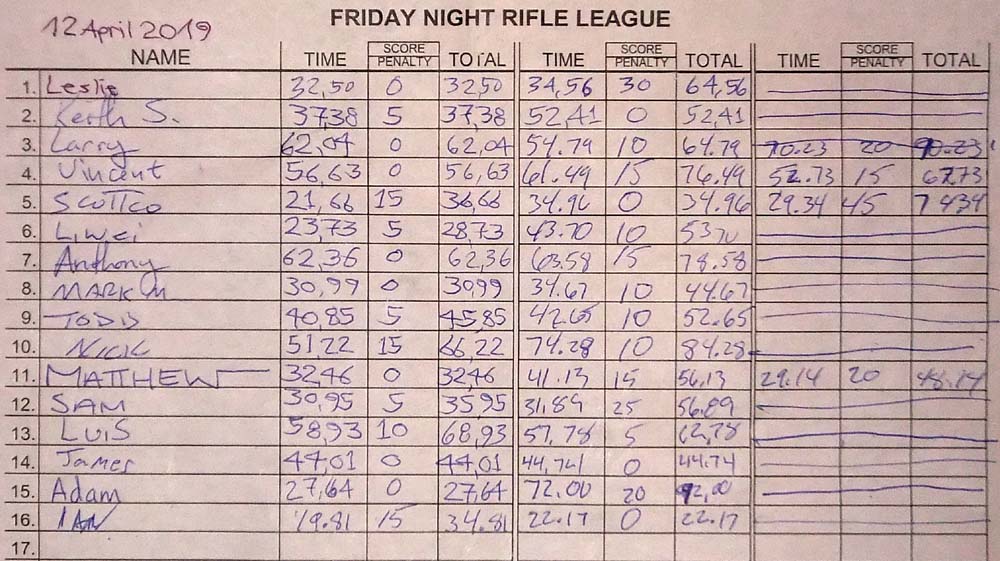 12 April 2019
FRIDAY NIGHT RIFLE LEAGUE
NAME TIME SCORE PENALTY TOTAL TIME SCORE PENALTY TOTAL TIME SCORE PENALTY TOTAL
1. Leslie 32,50 0 32,50 34,56 30 64,56
2. Keith S. 37,38 5 37,38 52,41 0 52,41
3. Larry 62,04 0 62,04 54.79 10 64.79 70.23 20 90.23
4. Vincent 56,63 0 56,63 61.49 15 76.49 52.73 15 67.73
5. SCOTTCO 21,66 15 36,66 34.96 0 34.96 29.34 45 7434
6. LiWei 23,73 5 28,73 43.70 10 5370
7. Anthony 62,36 0 62,36 63.58 15 78.58
8. MARK M 30,99 0 30,99 34.67 10 44.67
9. TODD 40,85 5 45,85 42.65 10 52.65
10. NICK 51,22 15 66,22 74.28 10 84.28
11. MATTHEW 32,46 0 32,46 41.13 15 56,13 29.14 20
12. SAM 30,95 5 35,95 31.89 25 56.89
13. LUIS 58,93 10 68,93 57.78 5 62,78
14. James 44,01 0 44,01 44,74 0 44.74
15. Adam 27,64 0 27,64 72.00 20 92,00
16. IAN 19.81 15 34.81 22.17 0 22.17
17.